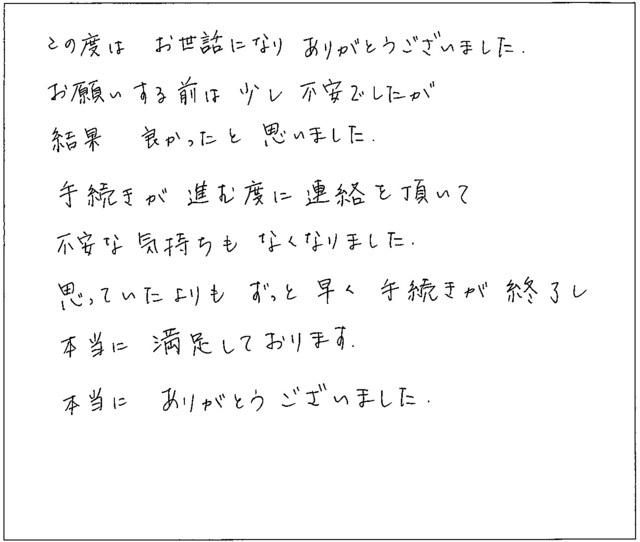 この度は お世話になり ありがとうございました.
お願いする前は 少し 不安でしたが
結果 良かったと 思いました.
手続きが 進む度に 連絡を頂いて
不安な気持ちも なくなりました.
思っていたよりも ずっと 早く 手続きが 終了し
本当に 満足しております.
本当に ありがとうございました.